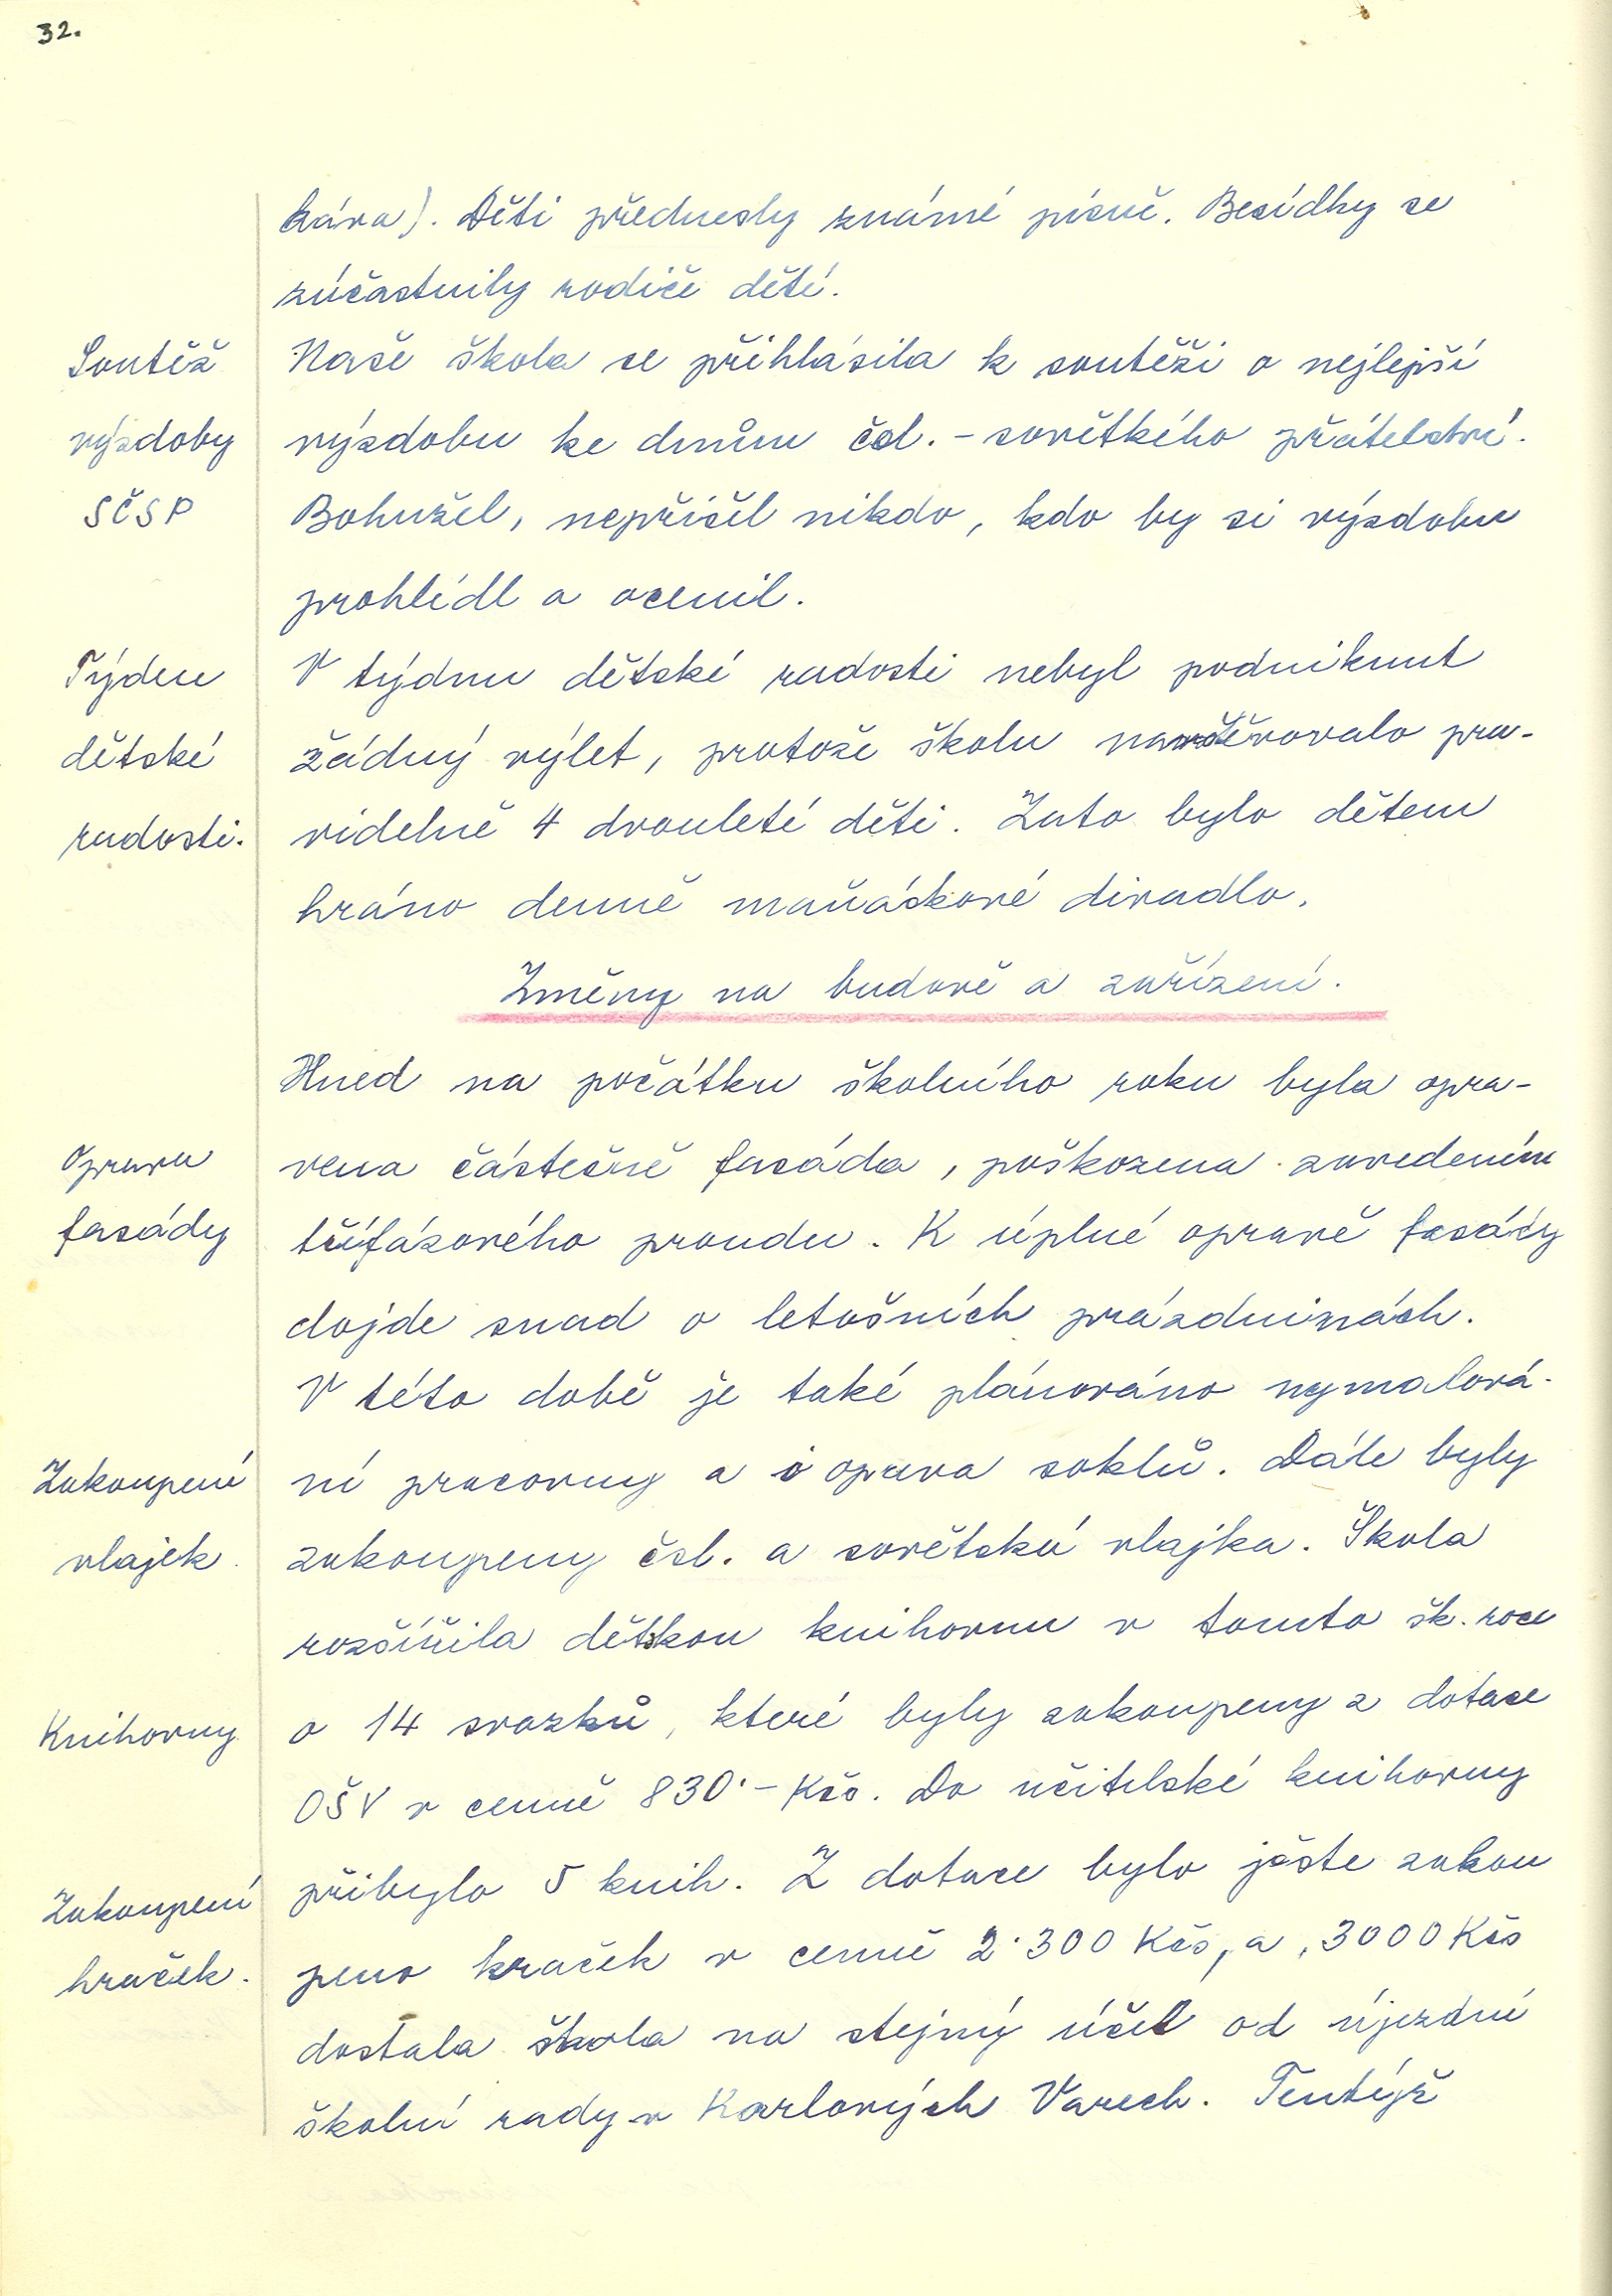 32.
kára). Děti přednesly známé písně. Besídky se
zúčastnily rodiče dětí.
Soutěž
výzdoby
SČSP
Naše škola se přihlásila k soutěži o nejlepší
výzdobu ke dnům čsl. - sovětkého přátelství.
Bohužel, nepřišel nikdo, kdo by si výzdobu
prohlédl a ocenil.
Týden
dětské
radosti.
V týdnu dětské radosti nebyl podniknut
žádný výlet, protože školu navštěvovalo pra-
videlně 4 dvouletí děti. Zato bylo dětem
hráno denně maňáskové divadlo.
Změny na budově a zařízení.
Hned na počátku školního roku byla opra-
Oprava
fasády
vena částečně fasáda, poškozena zavedením
třífázového proudu. K úplné opravě fasády
dojde snad o letošních prázdninách.
V této době je také plánováno vymalová-
Zakoupení
vlajek
ní pracovny a i oprava soklů. Dále byly
zakoupeny čsl. a sovětská vlajka. Škola
rozšířila dětskou knihovnu v tomto šk. roce
Knihovny
o 14 svazků, které byly zakoupeny z dotace
OŠV v ceně 830·- Kčs. Do učitelské knihovny
Zakoupení
hraček.
přibylo 5 knih. Z dotace bylo ješte zakou
peno hraček v cenně 2·300 Kčs, a 3000 Kčs
dostala škola na stejný účel od újezdní
školní rady v Karlových Varech. Tentýž